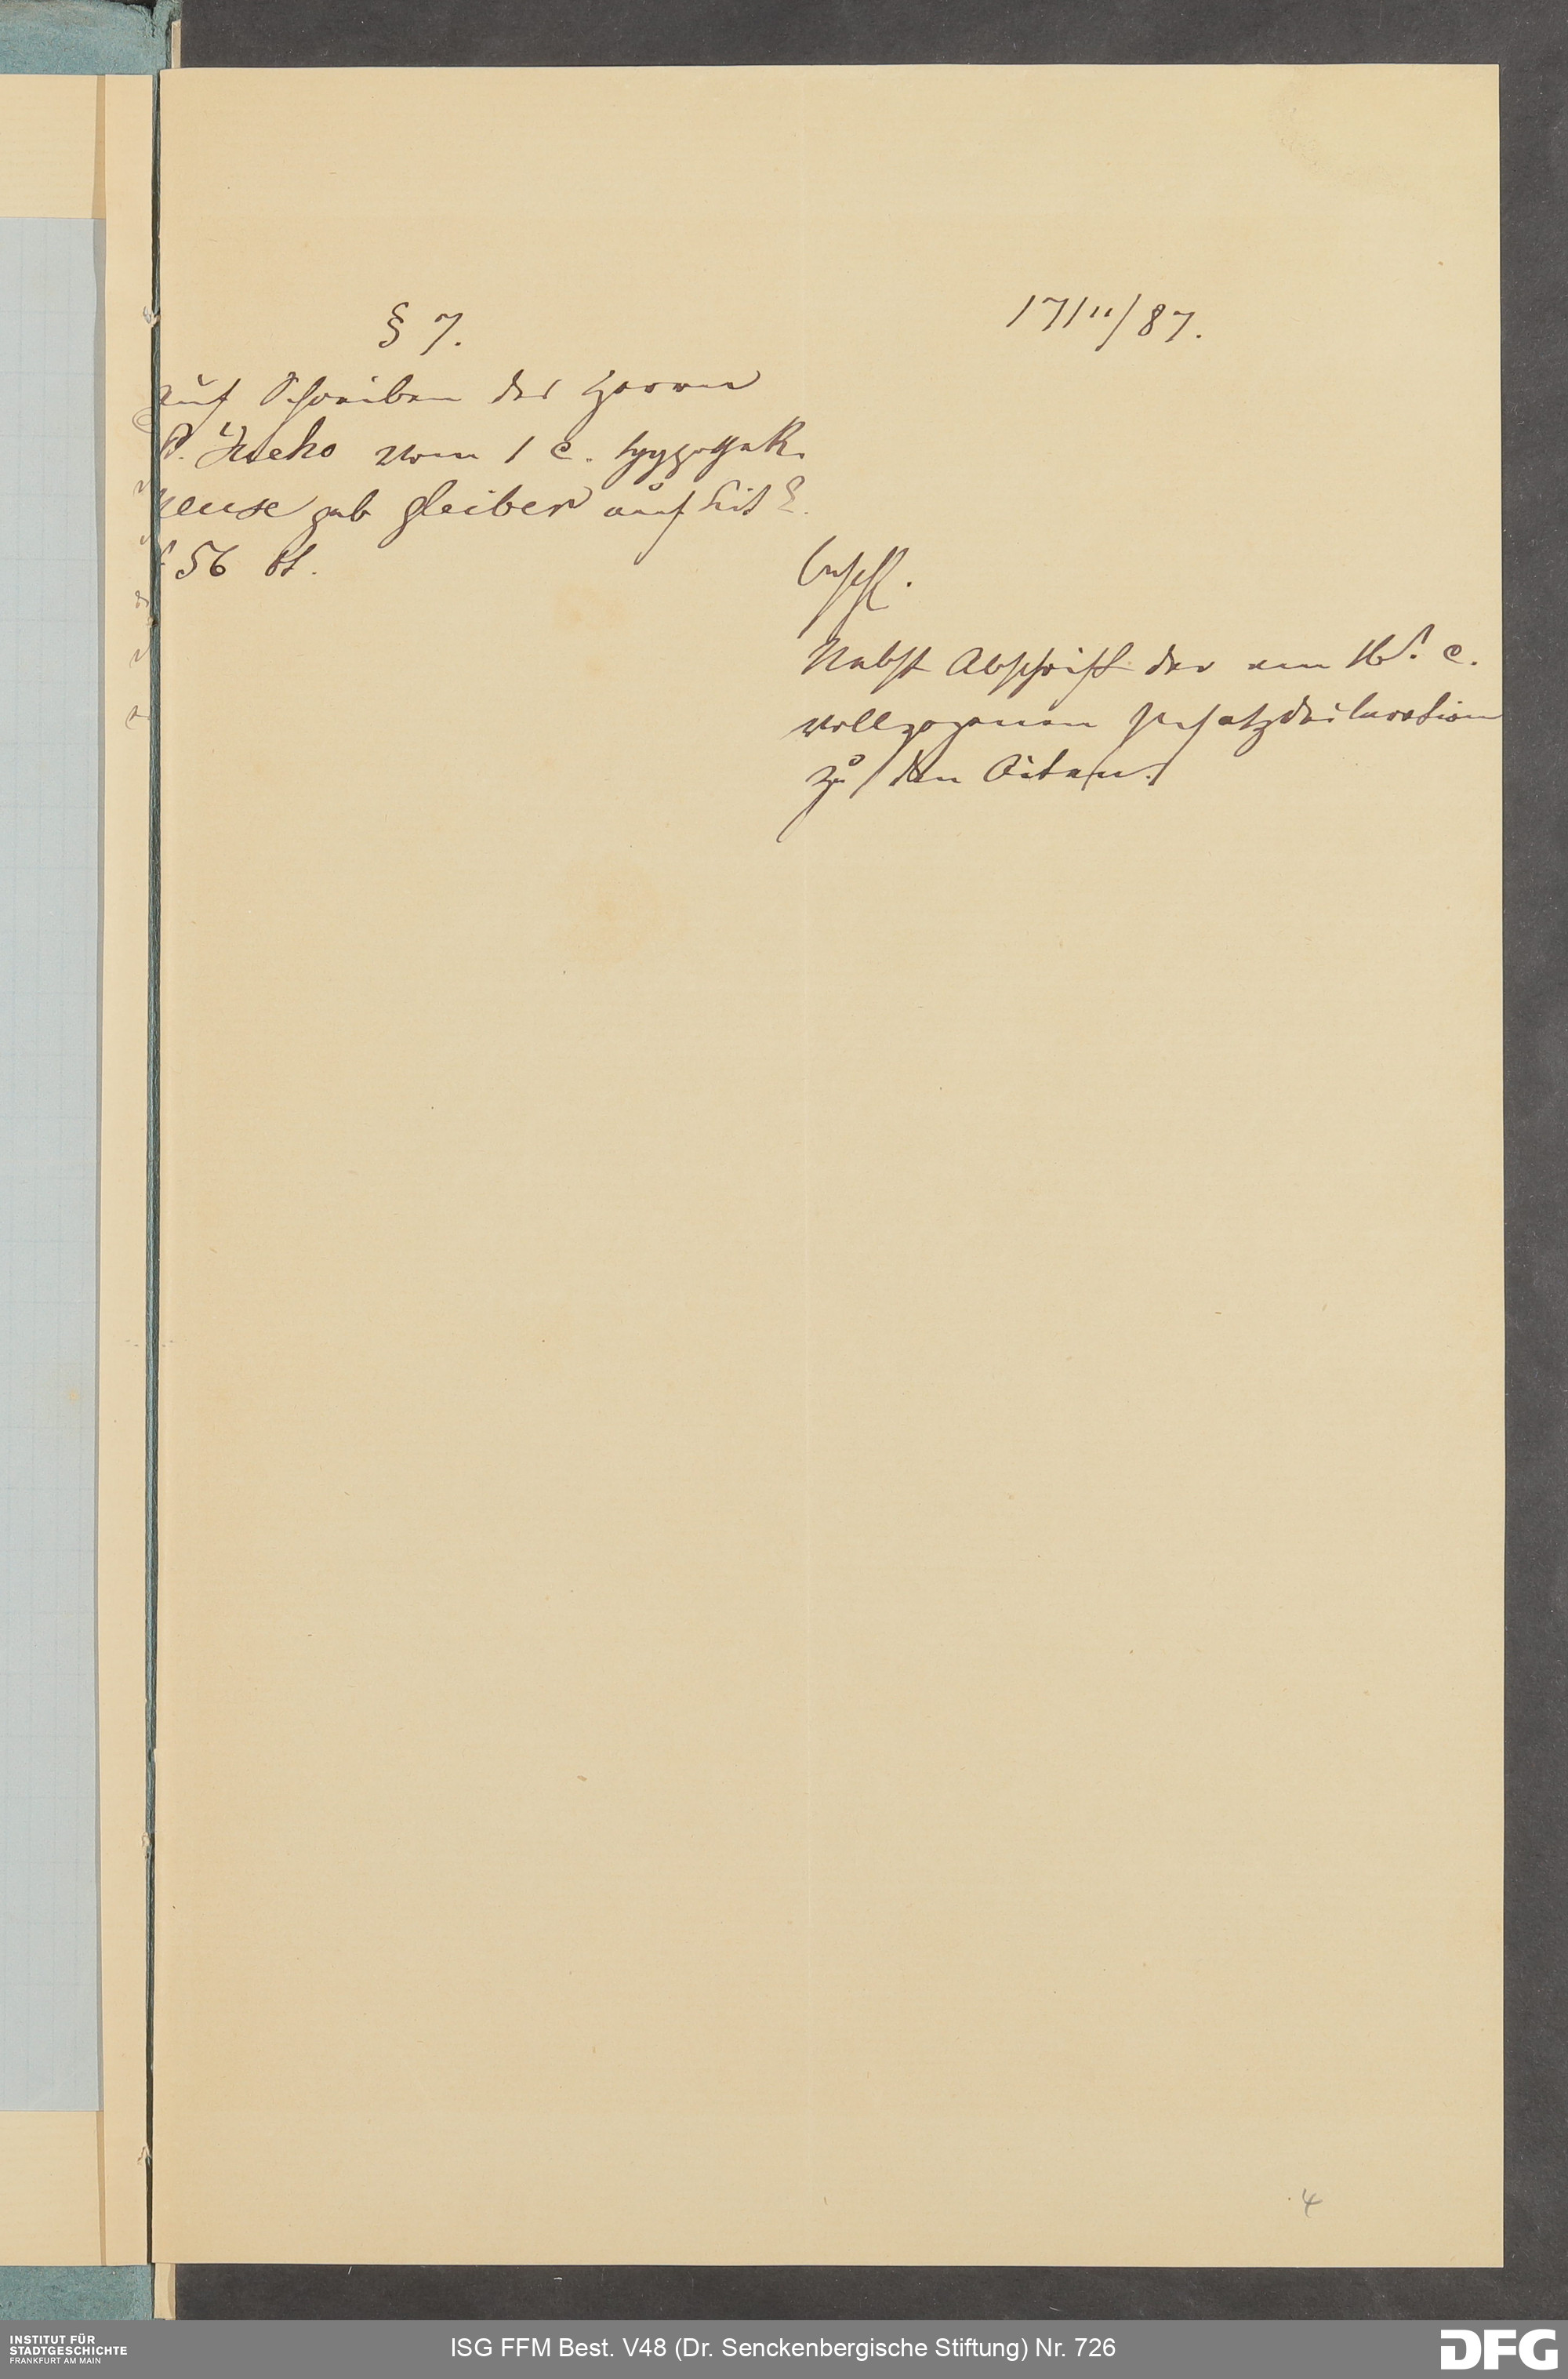 § 7.
auf Schreiben des Herrn
Dr. Jucho vom 1 c. Hypothek.
geb Gleiber auf Lit E.
56 bt.
17/11/87.
Beschl.
Nebst Abschrift der am 16t. c.
vollzogenen Zusatzdeclaration
zu den Acten.
4
INSTITUT FÜR
STADTGESCHICHTE
FRANKFURT AM MAIN
ISG FFM Best. V48 (Dr. Senckenbergische Stiftung) Nr. 726
DFG